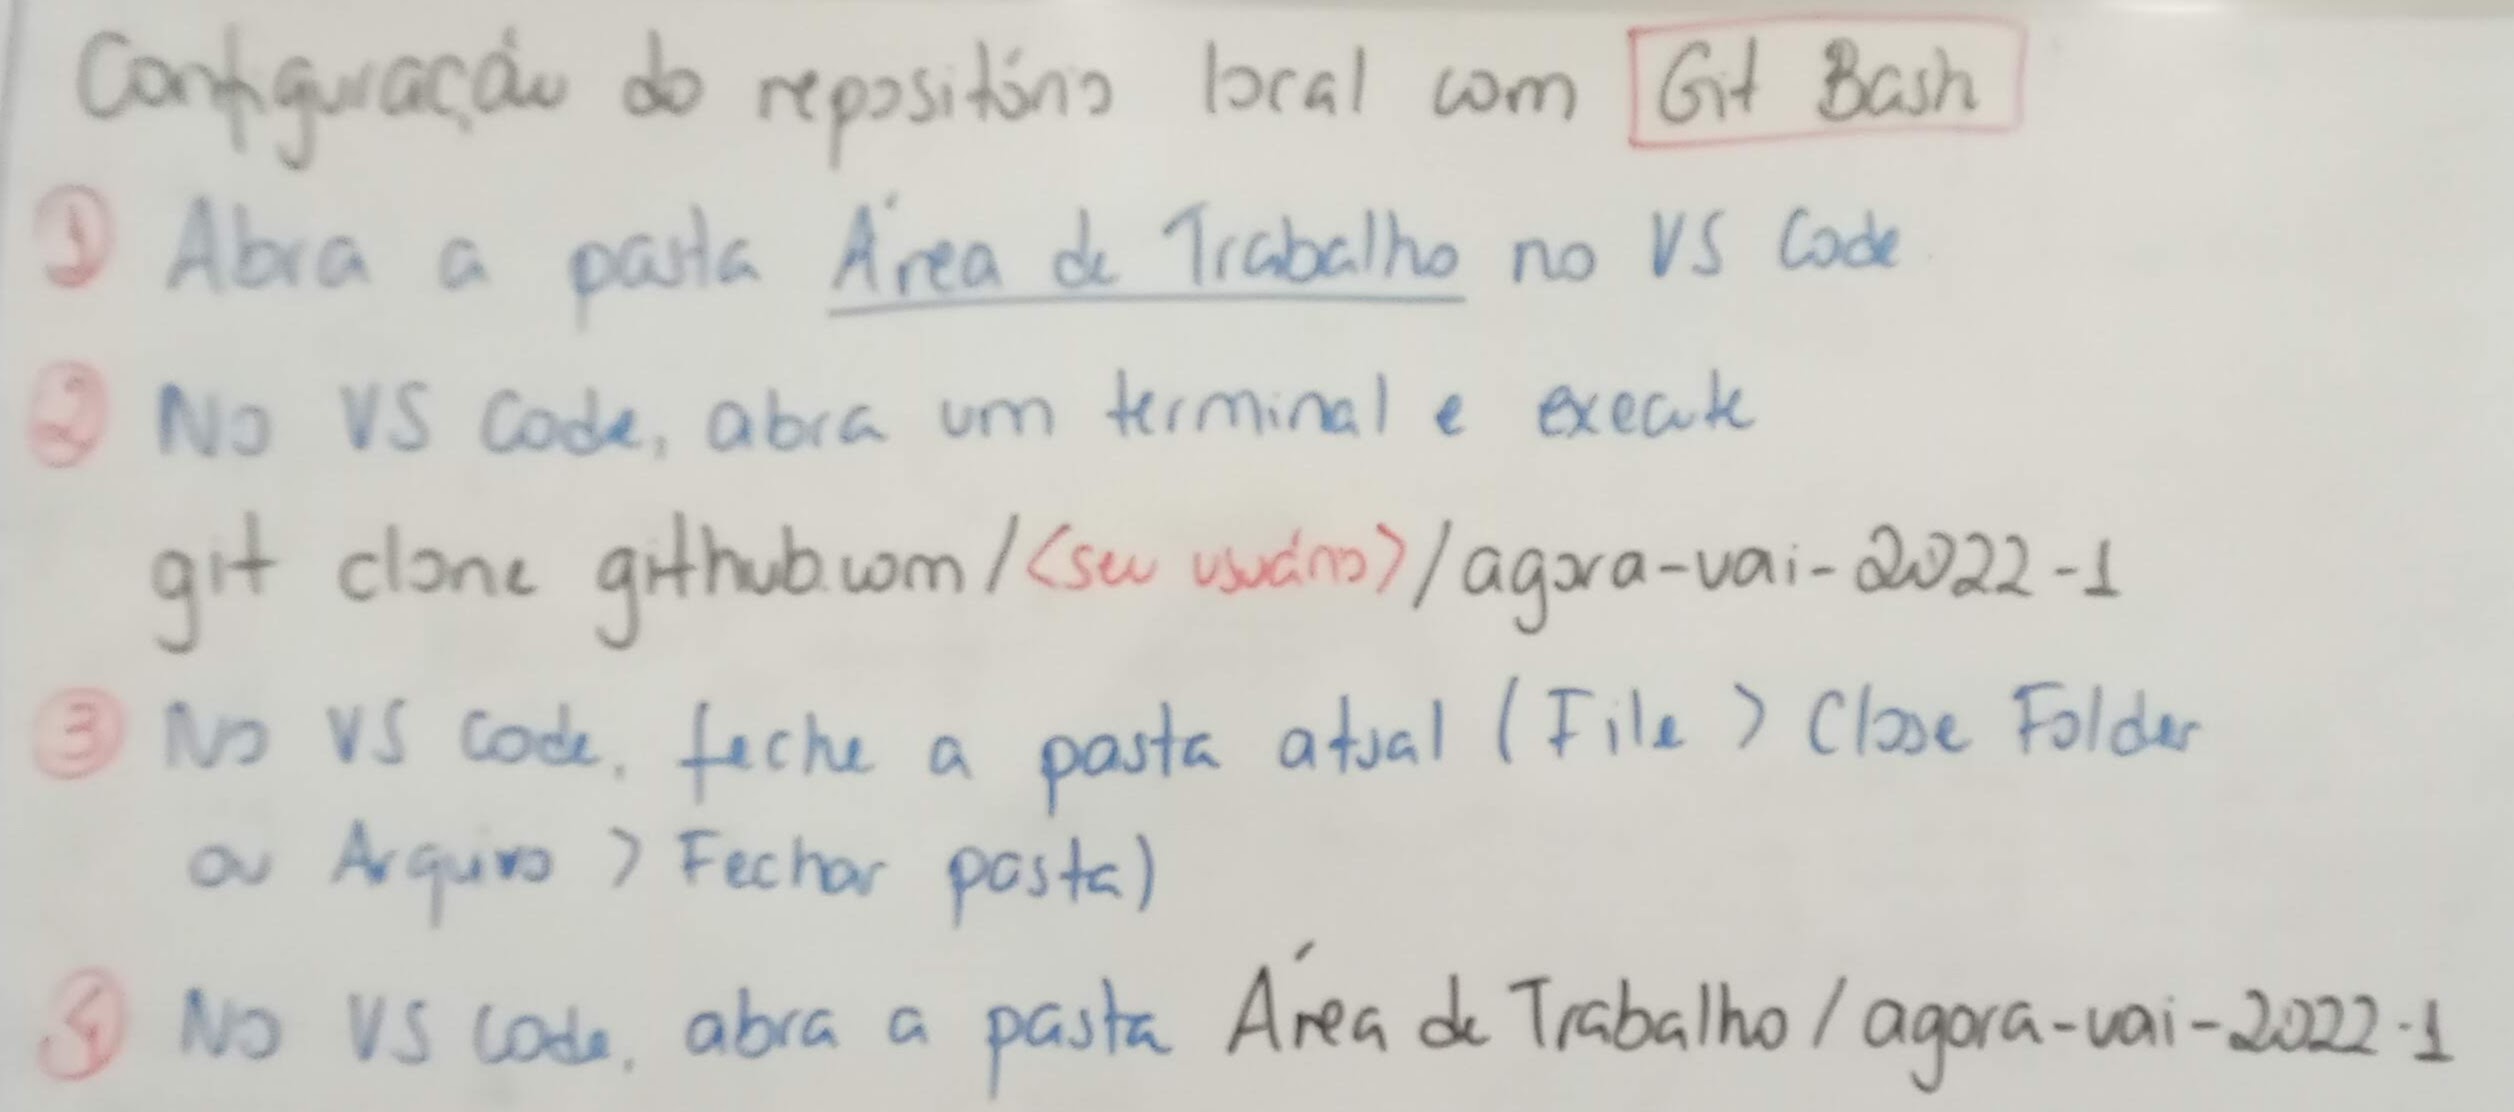 Configuração do repositório local com Git Bash
1 Abra a pasta Área de Trabalho no VS Code
2 No VS Code, abra um terminal e execute
git clone github.com/<seu usuário>/agora-vai-2022-1
3 No VS Code, feche a pasta atual (File > Close Folder
ou Arquivo > Fechar pasta)
4 No VS Code, abra a pasta Área de Trabalho/agora-vai-2022-1